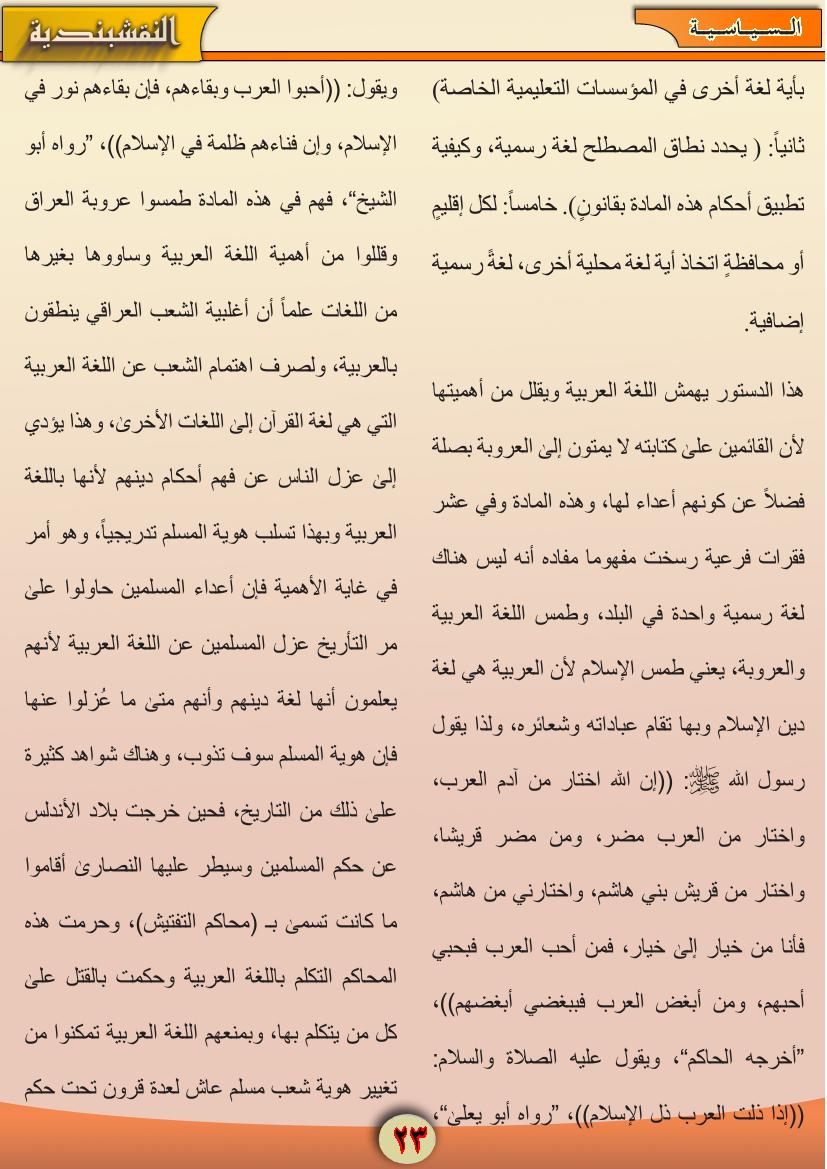 السياسية
النقشبندية
بأية لغة أخرى في المؤسسات التعليمية الخاصة)
ثانياً: ( يحدد نطاق المصطلح لغة رسمية، وكيفية
تطبيق أحكام هذه المادة بقانونٍ). خامساً: لكل إقليمٍ
أو محافظةٍ اتخاذ أية لغة محلية أخرى، لغةً رسمية
إضافية.
هذا الدستور يهمش اللغة العربية ويقلل من أهميتها
لأن القائمين علىٰ كتابته لا يمتون إلىٰ العروبة بصلة
فضلاً عن كونهم أعداء لها، وهذه المادة وفي عشر
فقرات فرعية رسخت مفهوما مفاده أنه ليس هناك
لغة رسمية واحدة في البلد، وطمس اللغة العربية
والعروبة، يعني طمس الإسلام لأن العربية هي لغة
دين الإسلام وبها تقام عباداته وشعائره، ولذا يقول
رسول الله ﷺ: ((إن الله اختار من آدم العرب،
واختار من العرب مضر، ومن مضر قريشا،
واختار من قريش بني هاشم، واختارني من هاشم،
فأنا من خيار إلىٰ خيار، فمن أحب العرب فبحبي
أحبهم، ومن أبغض العرب فببغضي أبغضهم))،
”أخرجه الحاكم“، ويقول عليه الصلاة والسلام:
((إذا ذلت العرب ذل الإسلام))، ”رواه أبو يعلىٰ“،
ويقول: ((أحبوا العرب وبقاءهم، فإن بقاءهم نور في
الإسلام، وإن فناءهم ظلمة في الإسلام))، ”رواه أبو
الشيخ“، فهم في هذه المادة طمسوا عروبة العراق
وقللوا من أهمية اللغة العربية وساووها بغيرها
من اللغات علماً أن أغلبية الشعب العراقي ينطقون
بالعربية، ولصرف اهتمام الشعب عن اللغة العربية
التي هي لغة القرآن إلىٰ اللغات الأخرىٰ، وهذا يؤدي
إلىٰ عزل الناس عن فهم أحكام دينهم لأنها باللغة
العربية وبهذا تسلب هوية المسلم تدريجياً، وهو أمر
في غاية الأهمية فإن أعداء المسلمين حاولوا علىٰ
مر التأريخ عزل المسلمين عن اللغة العربية لأنهم
يعلمون أنها لغة دينهم وأنهم متىٰ ما عُزلوا عنها
فإن هوية المسلم سوف تذوب، وهناك شواهد كثيرة
علىٰ ذلك من التاريخ، فحين خرجت بلاد الأندلس
عن حكم المسلمين وسيطر عليها النصارىٰ أقاموا
ما كانت تسمىٰ بـ (محاكم التفتيش)، وحرمت هذه
المحاكم التكلم باللغة العربية وحكمت بالقتل علىٰ
كل من يتكلم بها، وبمنعهم اللغة العربية تمكنوا من
تغيير هوية شعب مسلم عاش لعدة قرون تحت حكم
٢٣